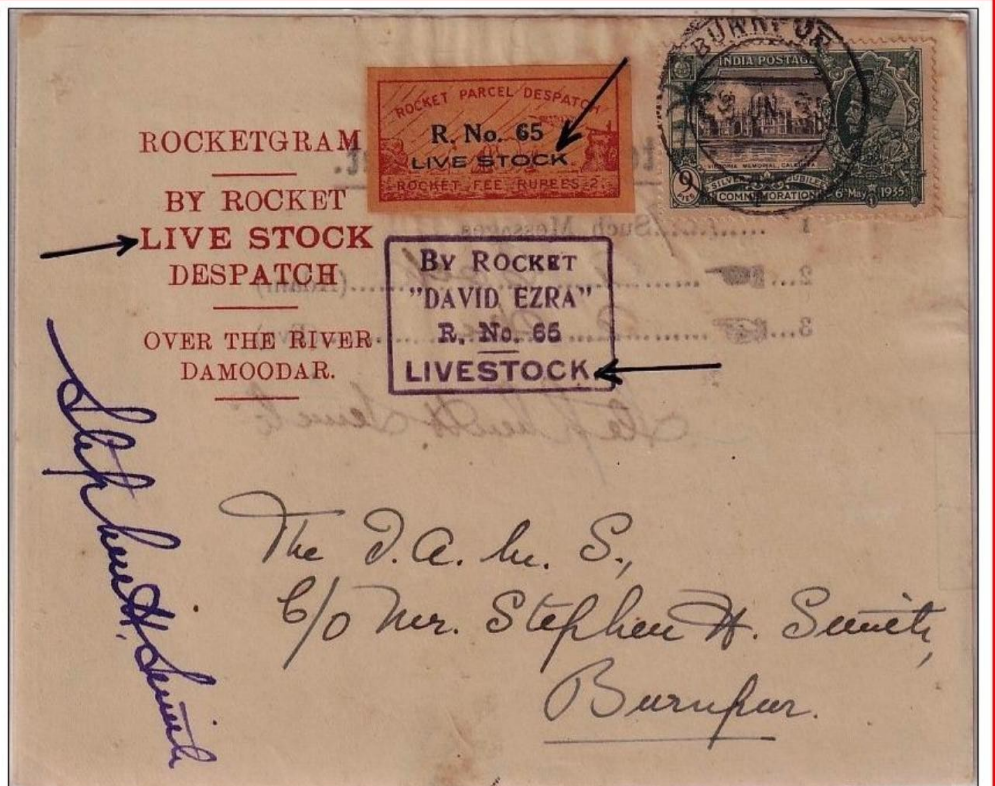 ROCKETGRAM
BY ROCKET
LIVE STOCK
DESPATCH
OVER THE RIVER
DAMOODAR.
ROCKET PARCEL DESPATCH
R. No. 65
LIVE STOCK.
ROCKET FEE RUPEES 2.
BURNPUR
INDIA POSTAGE
VICTORIA MEMORIAL, CALCUTTA
9
PIES
SILVER JUBILEE
COMMEMORATION
6th May 1935
BY ROCKET
"DAVID EZRA"
R. No. 65
LIVESTOCK.
1 Such Messages
2
3
Stephen H. Smith
Stephen H. Smith
The D.A.M.S.,
C/o Mr. Stephen H. Smith,
Burnpur.